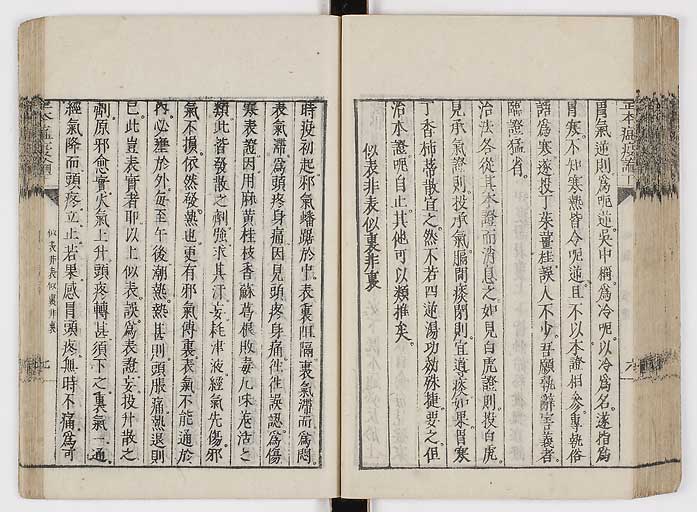 胃氣逆則爲呃逆吳中稱爲冷呃以冷爲名遂指爲
胃寒不知寒熱皆令呃逆且不以本證相參專執俗
語爲寒遂投丁茱薑桂誤人不少吾願執辭害義者
臨證猛省
治法各從其本證而消息之如見白虎證則投白虎
見承氣證則投承氣膈間痰閉則宜導痰如果胃寒
丁香柿蒂散宜之然不若四逆湯功効殊捷要之但
治本證呃自止其他可以類推矣
似表非表似裏非裏
時投初起邪氣蟠踞於中表裏阻隔裏氣滯而爲悶
表氣滯爲頭疼身痛因見頭疼身痛徃徃誤認爲傷
寒表證因用麻黃桂枝香蘇葛根敗毒九味羌活之
類此皆發散之劑強求其汗妄耗津液經氣先傷邪
氣不損依然發熱也更有邪氣傳裏表氣不能通於
內必壅於外每至午後潮熱熱甚則頭脹痛熱退則
已此豈表實者耶以上似表誤爲表證妄投升散之
劑原邪愈實火氣上升頭疼轉甚須下之裏氣一通
經氣降而頭疼立止若果感冒頭疼無時不痛爲可
似表非表似裏非裏